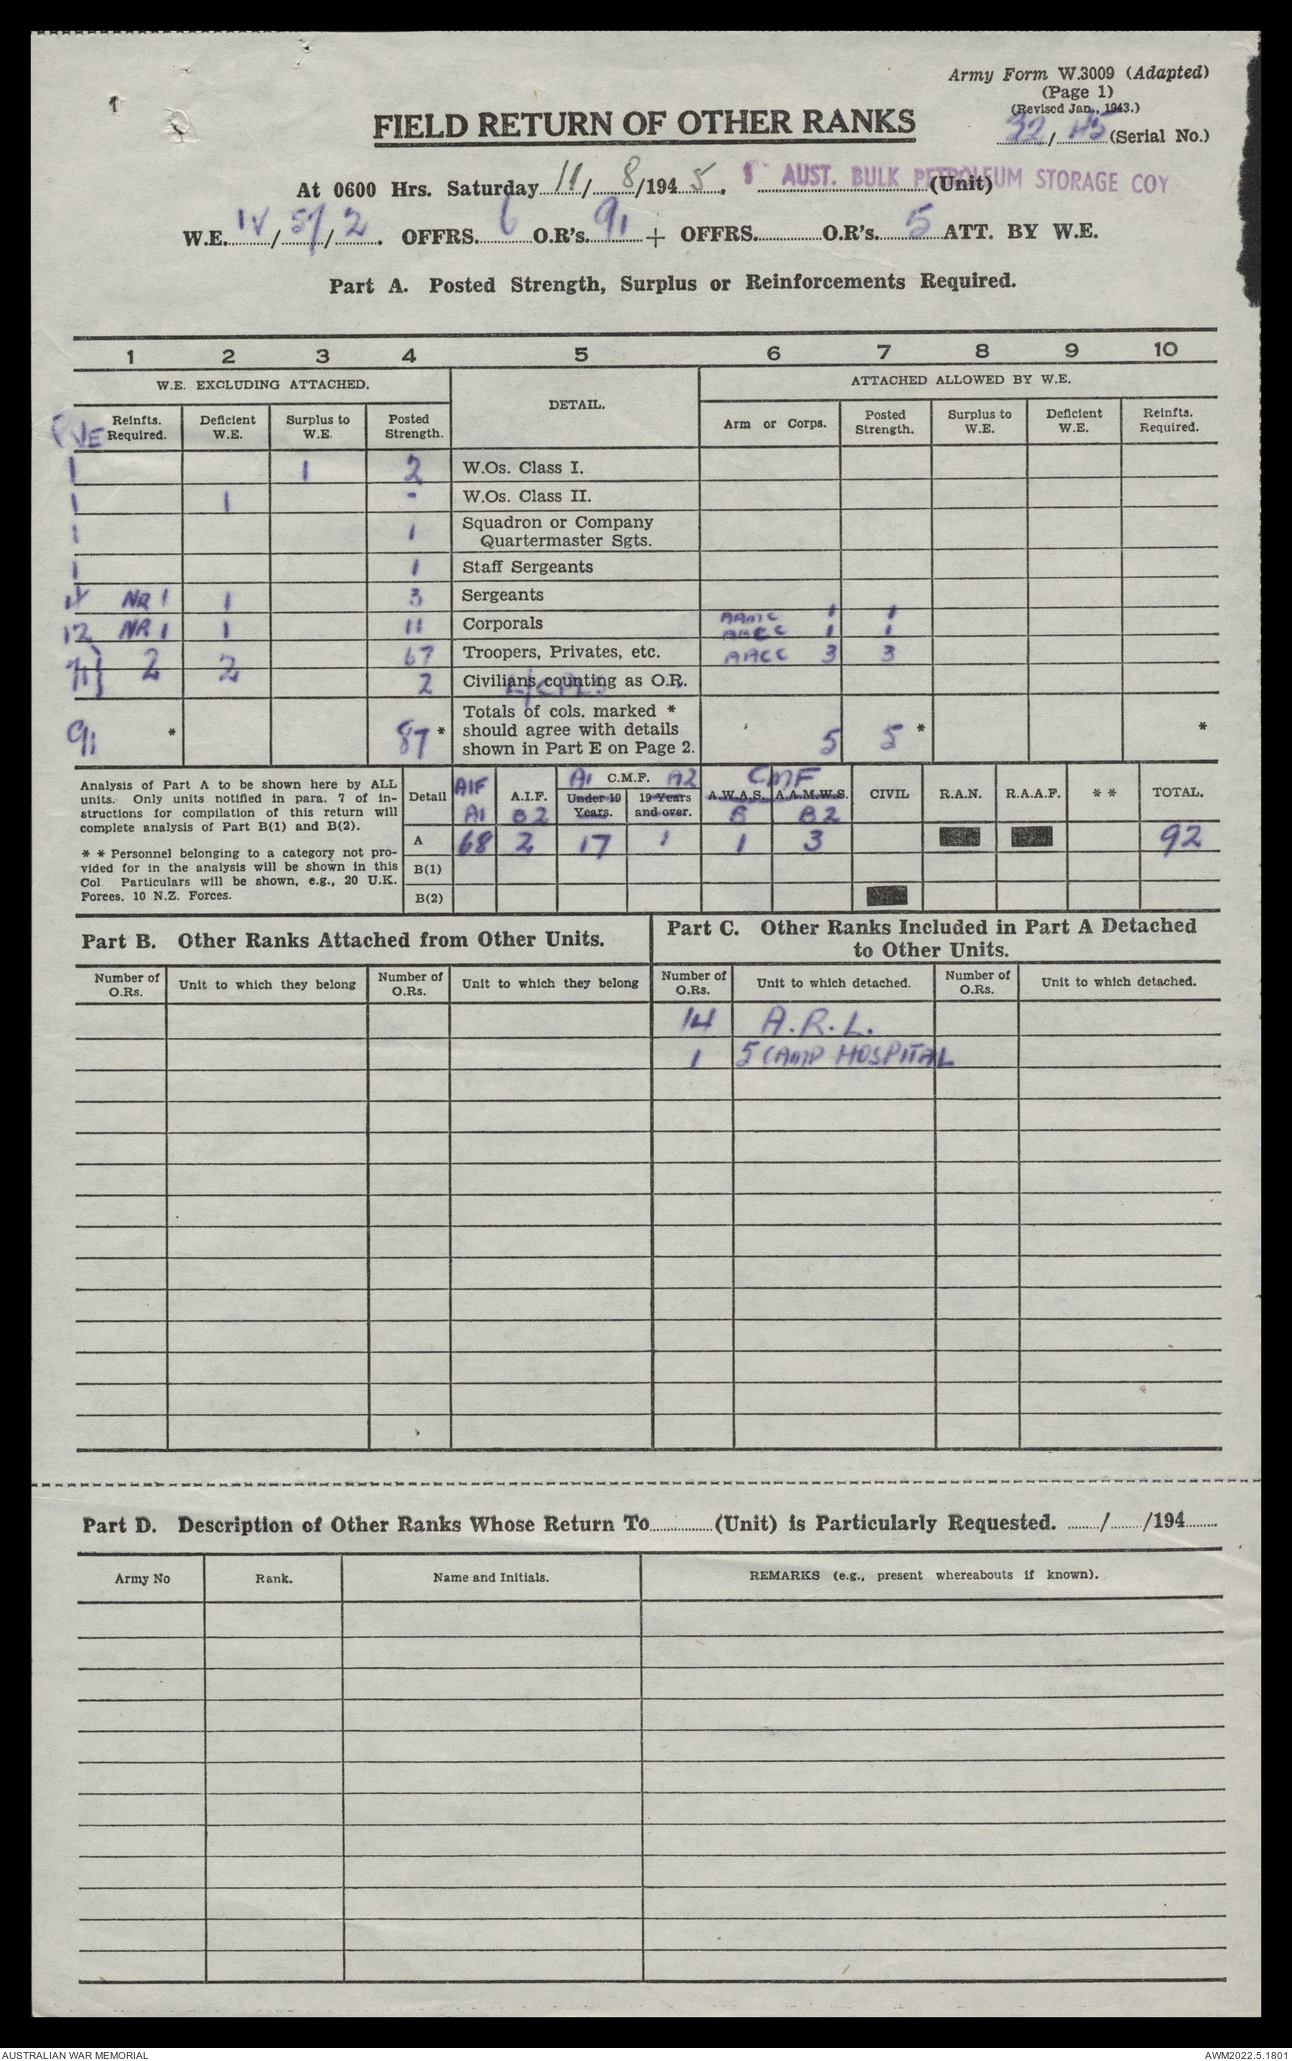 Army Form W.3009 (Adapted)
(Page 1)
(Revised Jan., 1943.)
32/45 (Serial No.)
1
FIELD RETURN OF OTHER RANKS
At 0600 Hrs. Saturday 11/8/1945. 1 AUST. BULK PETROLEUM STORAGE COY (Unit)
W.E. IV/57/2. OFFRS. 6 O.R's. 91 + OFFRS. O.R's. 5 ATT. BY W.E.
Part A. Posted Strength, Surplus or Reinforcements Required.
1 2 3 4 5 6 7 8 9 10
W.E. EXCLUDING ATTACHED. DETAIL. ATTACHED ALLOWED BY W.E.
Reinfts. Required. Deficient W.E. Surplus to W.E. Posted Strength. Arm or Corps. Posted Strength. Surplus to W.E. Deficient W.E. Reinfts. Required.
1 1 2 W.Os. Class I.
1 1 - W.Os. Class II.
1 1 Squadron or Company
Quartermaster Sgts.
1 1 Staff Sergeants
4 NR 1 1 3 Sergeants
12 NR 1 1 11 Corporals AAMC 1 1
AAEC 1 1
71 2 2 67 Troopers, Privates, etc. AACC 3 3
2 Civilians counting as O.R. L/CPLS
91 * 87 * Totals of cols. marked *
should agree with details
shown in Part E on Page 2. 5 5 * *
Analysis of Part A to be shown here by ALL
units. Only units notified in para. 7 of in-
structions for compilation of this return will
complete analysis of Part B(1) and B(2).
* * Personnel belonging to a category not pro-
vided for in the analysis will be shown in this
Col. Particulars will be shown, e.g., 20 U.K.
Forces, 10 N.Z. Forces.
Detail AIF A1 A.I.F. B2 A1 C.M.F. A2 Under 19 Years. 19 Years and over. CMF A.W.A.S. B A.A.M.W.S. B2 CIVIL R.A.N. R.A.A.F. * * TOTAL.
A 68 2 17 1 1 3 92
B(1)
B(2)
Part B. Other Ranks Attached from Other Units.
Part C. Other Ranks Included in Part A Detached
to Other Units.
Number of O.Rs. Unit to which they belong Number of O.Rs. Unit to which they belong Number of O.Rs. Unit to which detached. Number of O.Rs. Unit to which detached.
14 A.R.L.
1 5 CAMP HOSPITAL
Part D. Description of Other Ranks Whose Return To (Unit) is Particularly Requested. / /194
Army No Rank. Name and Initials. REMARKS (e.g., present whereabouts if known).
AUSTRALIAN WAR MEMORIAL AWM2022.5.1801